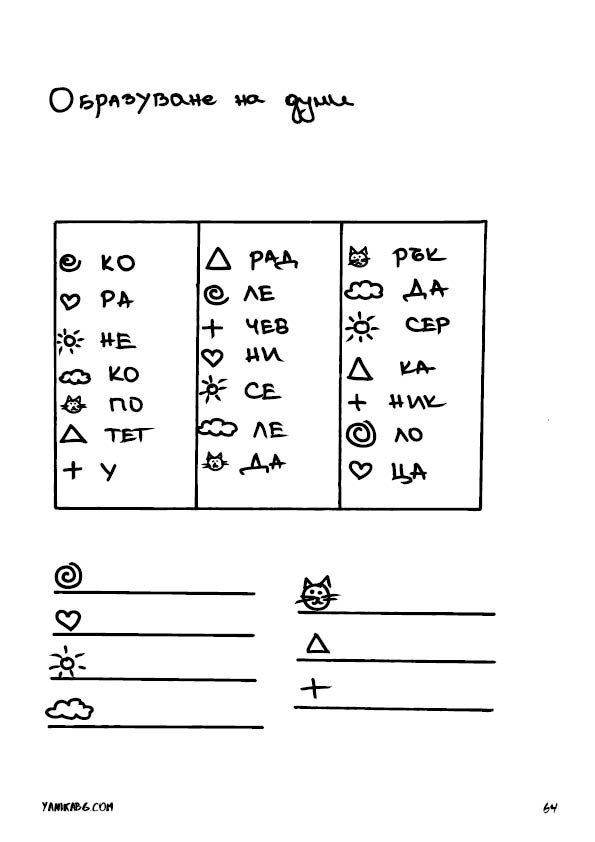 Образуване на думи
КО
РА
НЕ
КО
ПО
ТЕТ
У
РАД
ЛЕ
ЧЕВ
НИ
СЕ
ЛЕ
ДА
РЪК
ДА
СЕР
КА
НИК
ЛО
ЦА
YANIKABG.COM
64